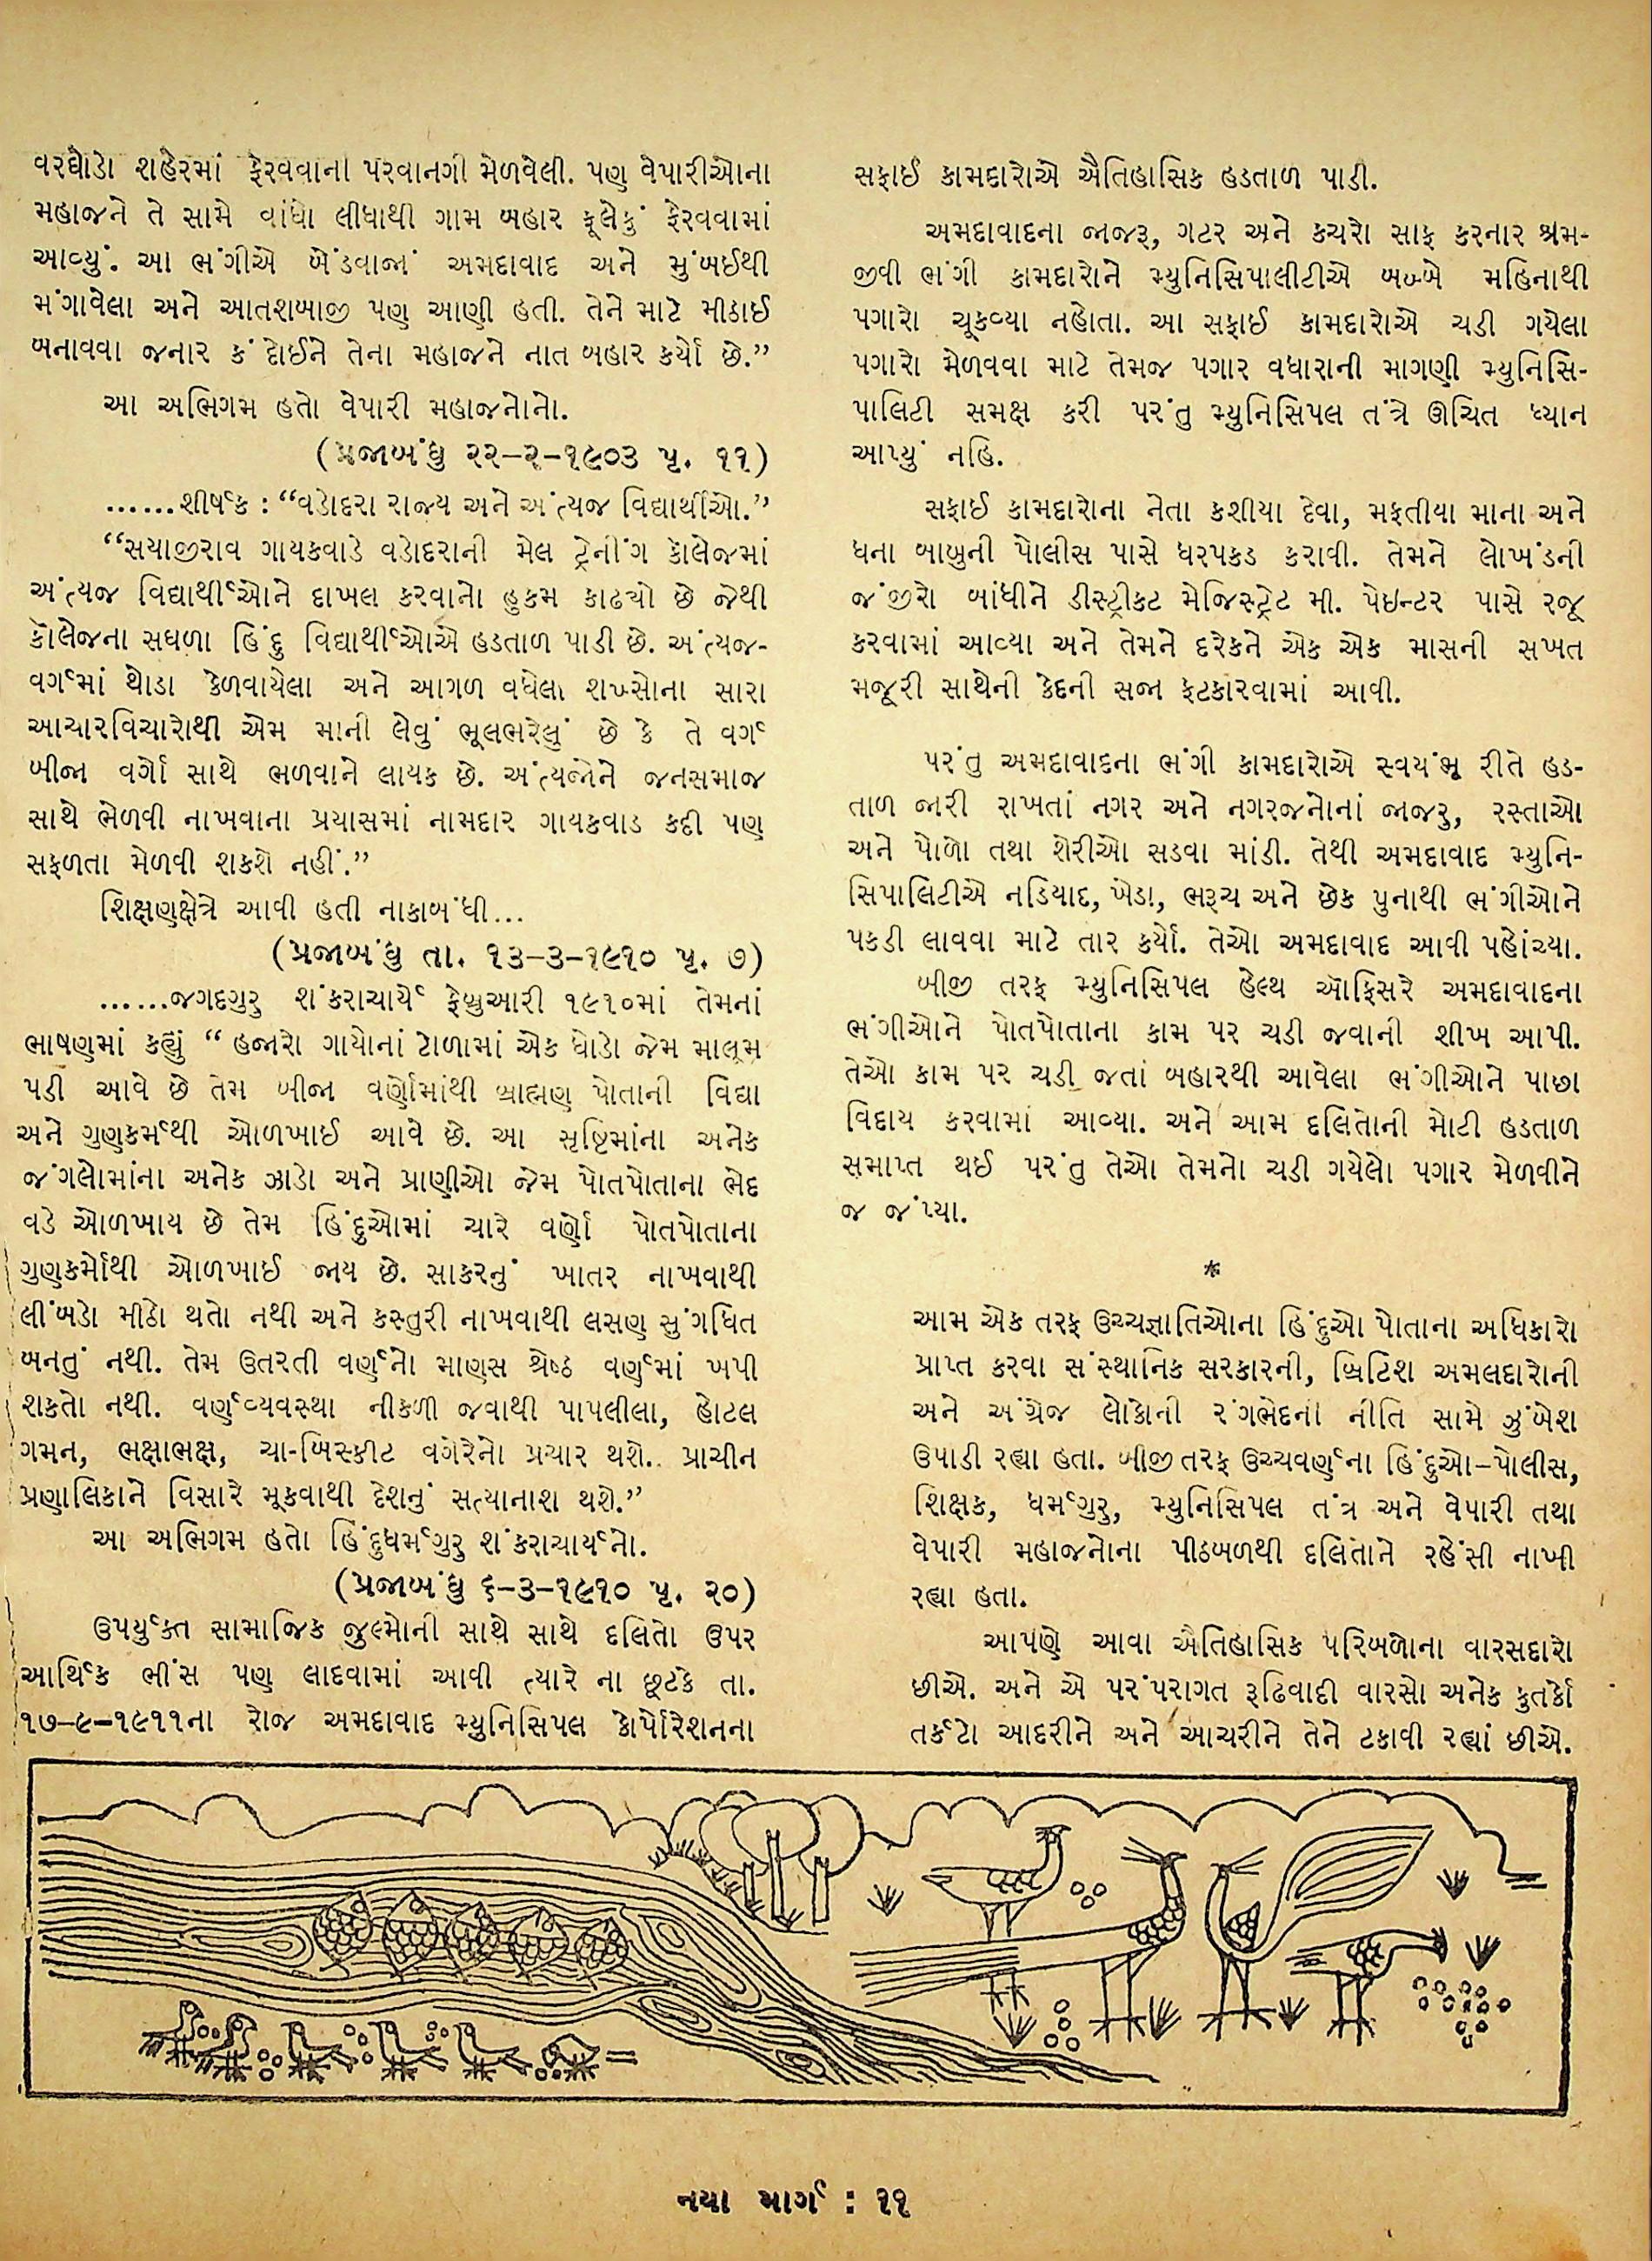 વરઘોડો શહેરમાં ફેરવવાની પરવાનગી મેળવેલી. પણ વેપારીઓના
મહાજને તે સામે વાંધો લીધાથી ગામ બહાર ફૂલેકું ફેરવવામાં
આવ્યું. આ ભંગીએ બેંડવાજાં અમદાવાદ અને મુંબઈથી
મંગાવેલા અને આતશબાજી પણ આણી હતી. તેને માટે મીઠાઈ
બનાવવા જનાર કંદોઈને તેના મહાજને નાત બહાર કર્યો છે.”
આ અભિગમ હતો વેપારી મહાજનોનો.
(પ્રજાબંધુ ૨૨–૨–૧૯૦૩ પૃ. ૧૧)
......શીર્ષક : “વડોદરા રાજ્ય અને અંત્યજ વિદ્યાર્થીઓ.”
“સયાજીરાવ ગાયકવાડે વડોદરાની મેલ ટ્રેનીંગ કૉલેજમાં
અંત્યજ વિદ્યાર્થીઓને દાખલ કરવાનો હુકમ કાઢ્યો છે જેથી
કૉલેજના સઘળા હિંદુ વિદ્યાર્થીઓએ હડતાળ પાડી છે. અંત્યજ-
વર્ગમાં થોડા કેળવાયેલા અને આગળ વધેલા શખ્સોના સારા
આચારવિચારોથી એમ માની લેવું ભૂલભરેલું છે કે તે વર્ગ
બીજા વર્ગો સાથે ભળવાને લાયક છે. અંત્યજોને જનસમાજ
સાથે ભેળવી નાખવાના પ્રયાસમાં નામદાર ગાયકવાડ કદી પણ
સફળતા મેળવી શકશે નહીં.”
શિક્ષણક્ષેત્રે આવી હતી નાકાબંધી...
(પ્રજાબંધુ તા. ૧૩–૩–૧૯૧૦ પૃ. ૭)
......જગદગુરુ શંકરાચાર્યે ફેબ્રુઆરી ૧૯૧૦માં તેમનાં
ભાષણમાં કહ્યું “ હજારો ગાયોનાં ટોળામાં એક ઘોડો જેમ માલૂમ
પડી આવે છે તેમ બીજા વર્ણોમાંથી બ્રાહ્મણ પોતાની વિદ્યા
અને ગુણકર્મથી ઓળખાઈ આવે છે. આ સૃષ્ટિમાંના અનેક
જંગલોમાંના અનેક ઝાડો અને પ્રાણીઓ જેમ પોતપોતાના ભેદ
વડે ઓળખાય છે તેમ હિંદુઓમાં ચારે વર્ણો પોતપોતાના
ગુણકર્મોથી ઓળખાઈ જાય છે. સાકરનું ખાતર નાખવાથી
લીંબડો મીઠો થતો નથી અને કસ્તુરી નાખવાથી લસણ સુંગધિત
બનતું નથી. તેમ ઉતરતી વર્ણનો માણસ શ્રેષ્ઠ વર્ણમાં ખપી
શકતો નથી. વર્ણવ્યવસ્થા નીકળી જવાથી પાપલીલા, હોટલ
ગમન, ભક્ષાભક્ષ, ચા-બિસ્કીટ વગેરેનો પ્રચાર થશે. પ્રાચીન
પ્રણાલિકાને વિસારે મૂકવાથી દેશનું સત્યાનાશ થશે.”
આ અભિગમ હતો હિંદુધર્મગુરુ શંકરાચાર્યનો.
(પ્રજાબંધુ ૬–૩–૧૯૧૦ પૃ. ૨૦)
ઉપર્યુક્ત સામાજિક જુલ્મોની સાથે સાથે દલિતો ઉપર
આર્થિક ભીંસ પણ લાદવામાં આવી ત્યારે ના છૂટકે તા.
૧૭–૯–૧૯૧૧ના રોજ અમદાવાદ મ્યુનિસિપલ કોર્પોરેશનના
સફાઈ કામદારોએ ઐતિહાસિક હડતાળ પાડી.
અમદાવાદના જાજરૂ, ગટર અને કચરો સાફ કરનાર શ્રમ-
જીવી ભંગી કામદારોને મ્યુનિસિપાલીટીએ બબ્બે મહિનાથી
પગારો ચૂકવ્યા નહોતા. આ સફાઈ કામદારોએ ચડી ગયેલા
પગારો મેળવવા માટે તેમજ પગાર વધારાની માગણી મ્યુનિસિ-
પાલિટી સમક્ષ કરી પરંતુ મ્યુનિસિપલ તંત્રે ઊચિત ધ્યાન
આપ્યું નહિ.
સફાઈ કામદારોના નેતા કશીયા દેવા, મફતીયા માના અને
ધના બાબુની પોલીસ પાસે ધરપકડ કરાવી. તેમને લોખંડની
જંજીરો બાંધીને ડીસ્ટ્રીકટ મેજિસ્ટ્રેટ મી. પેઇન્ટર પાસે રજૂ
કરવામાં આવ્યા અને તેમને દરેકને એક એક માસની સખત
મજૂરી સાથેની કેદની સજા ફટકારવામાં આવી.
પરંતુ અમદાવાદના ભંગી કામદારોએ સ્વયંભૂ રીતે હડ-
તાળ જારી રાખતાં નગર અને નગરજનોનાં જાજરુ, રસ્તાઓ
અને પોળો તથા શેરીઓ સડવા માંડી. તેથી અમદાવાદ મ્યુનિ-
સિપાલિટીએ નડિયાદ, ખેડા, ભરૂચ અને છેક પુનાથી ભંગીઓને
પકડી લાવવા માટે તાર કર્યો. તેઓ અમદાવાદ આવી પહોંચ્યા.
બીજી તરફ મ્યુનિસિપલ હેલ્થ ઑફિસરે અમદાવાદના
ભંગીઓને પોતપોતાના કામ પર ચડી જવાની શીખ આપી.
તેઓ કામ પર ચડી જતાં બહારથી આવેલા ભંગીઓને પાછા
વિદાય કરવામાં આવ્યા. અને આમ દલિતોની મોટી હડતાળ
સમાપ્ત થઈ પરંતુ તેઓ તેમનો ચડી ગયેલો પગાર મેળવીને
જ જંપ્યા.
*
આમ એક તરફ ઉચ્ચજ્ઞાતિઓના હિંદુઓ પોતાના અધિકારો
પ્રાપ્ત કરવા સંસ્થાનિક સરકારની, બ્રિટિશ અમલદારોની
અને અંગ્રેજ લોકોની રંગભેદની નીતિ સામે ઝુંબેશ
ઉપાડી રહ્યા હતા. બીજી તરફ ઉચ્ચવર્ણના હિંદુઓ–પોલીસ,
શિક્ષક, ધર્મગુરુ, મ્યુનિસિપલ તંત્ર અને વેપારી તથા
વેપારી મહાજનોના પીઠબળથી દલિતોને રહેંસી નાખી
રહ્યા હતા.
આપણે આવા ઐતિહાસિક પરિબળોના વારસદારો
છીએ. અને એ પરંપરાગત રૂઢિવાદી વારસો અનેક કુતર્કો
તર્કટો આદરીને અને આચરીને તેને ટકાવી રહ્યાં છીએ.
નયા માર્ગ : ૧૧